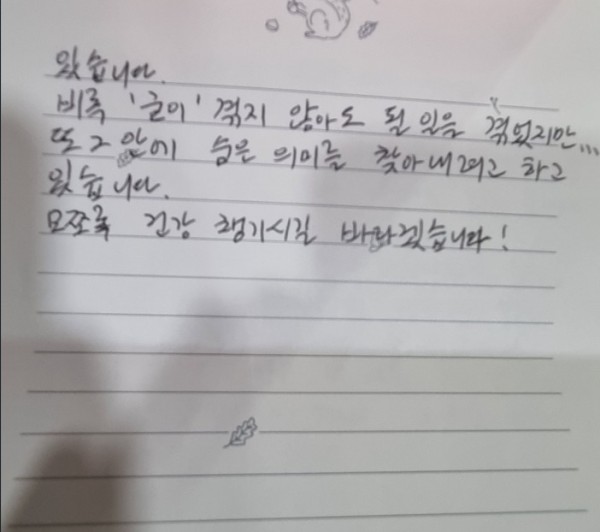 있습니다.
비록 '굳이' 겪지 않아도 될 일을 겪었지만...
또 그 안에 숨은 의미를 찾아내려고 하고
있습니다.
모쪼록 건강 챙기시길 바라겠습니다!